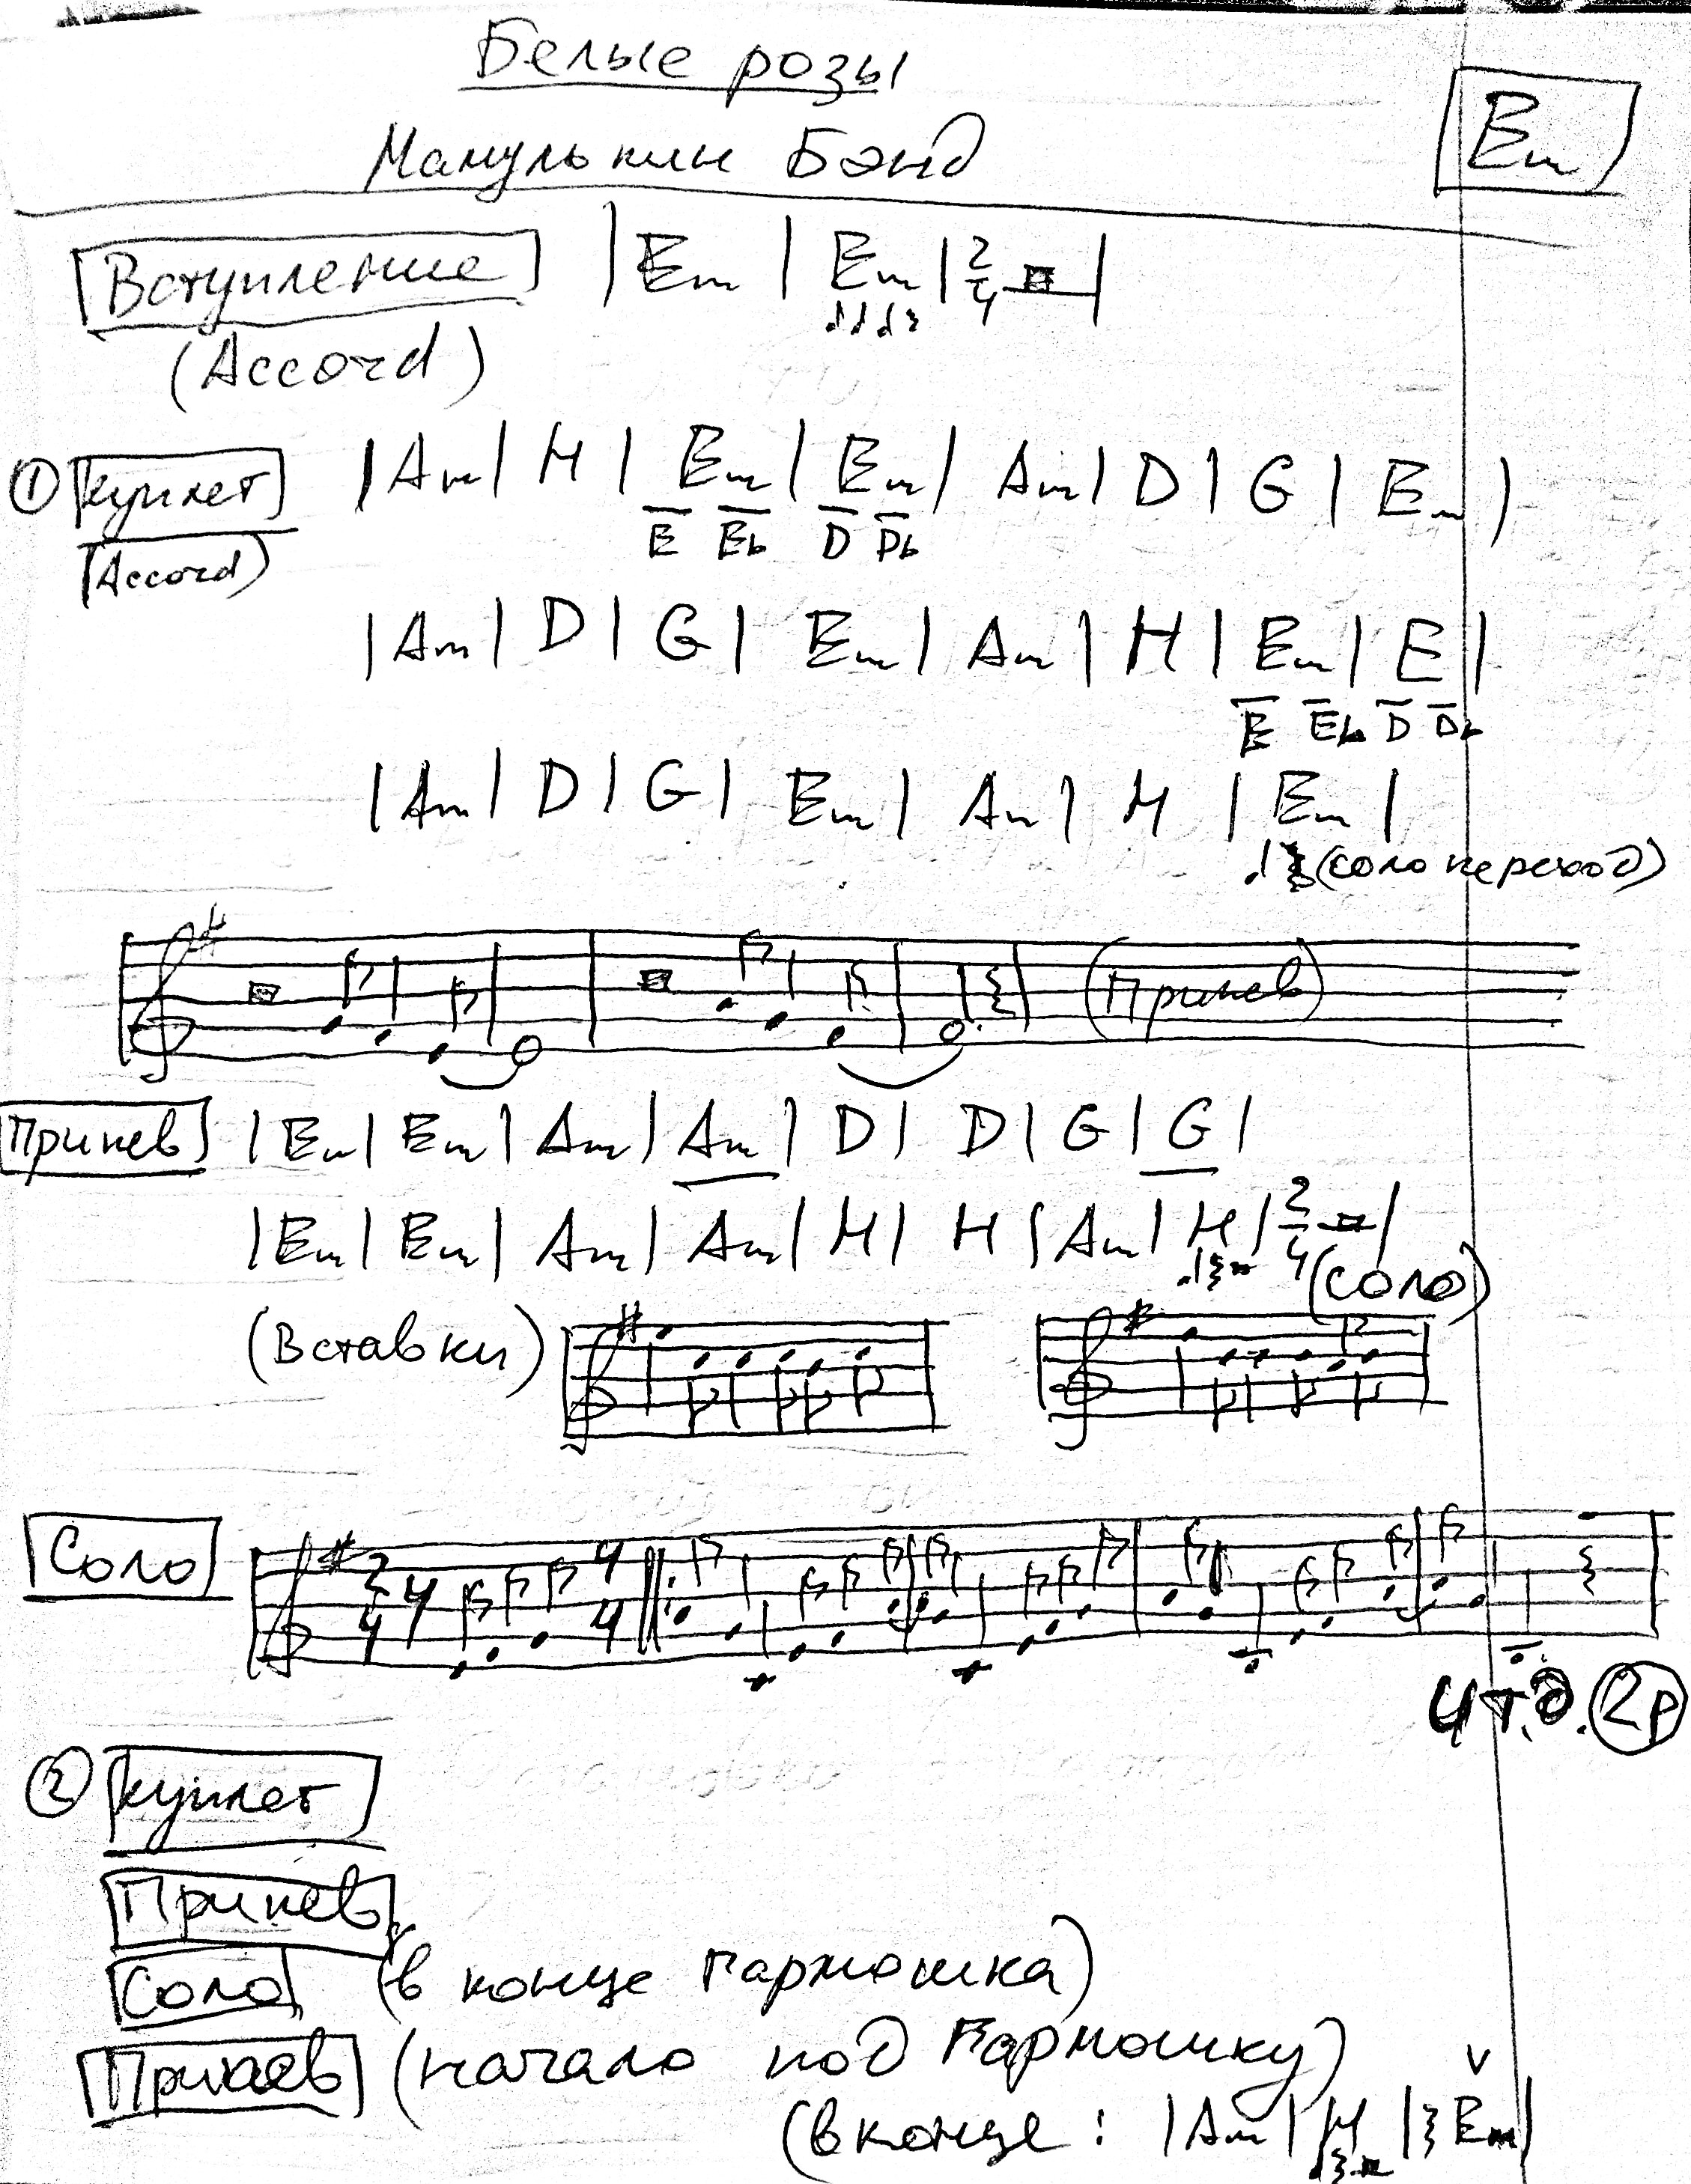 Белые розы
Манулькин Бэнд
Em
Вступление | Em | Em | 2/4 |
(Accord)
① Куплет | Am | H | Em | Em | Am | D | G | Em |
E Eb D Db
(Accord)
| Am | D | G | Em | Am | H | Em | E |
E Eb D Db
| Am | D | G | Em | Am | H | Em |
(соло переход)
(Припев)
Припев | Em | Em | Am | Am | D | D | G | G |
| Em | Em | Am | Am | H | H | Am | H | 2/4 |
(соло)
(Вставки)
Соло 2/4 4 4/4
и т.д. 2р
② Куплет
Припев
Соло (в конце гармошка)
Припев (начало под гармошку)
(в конце: | Am | H | Em |